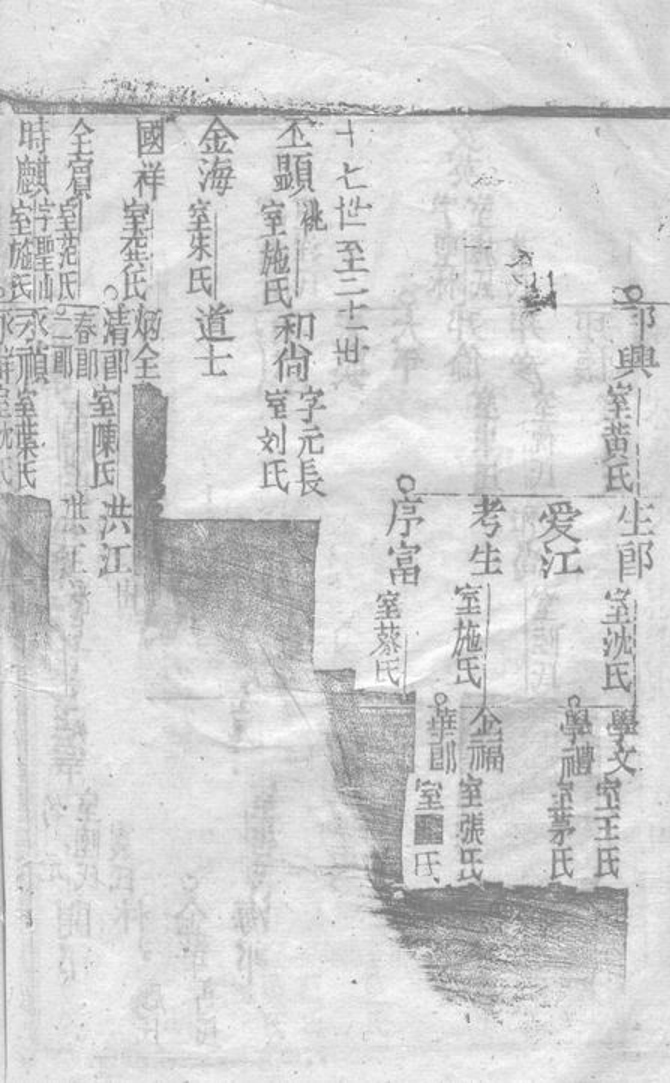 興
室黃氏
生郎
室沈氏
學文
室王氏
學禮
室茅氏
爱江
考生
室施氏
企福
室張氏
華郎
室
氏
序富
室蔡氏
十七世至二十二世
丕顯
祧
室施氏
和尚
字元長
室刘氏
金海
室朱氏
道士
國祥
室龚氏
炳全
清郎
室陳氏
洪江
全寶
室范氏
春郎
二郎
時麒
字聖仙
室施氏
永禎
室葉氏